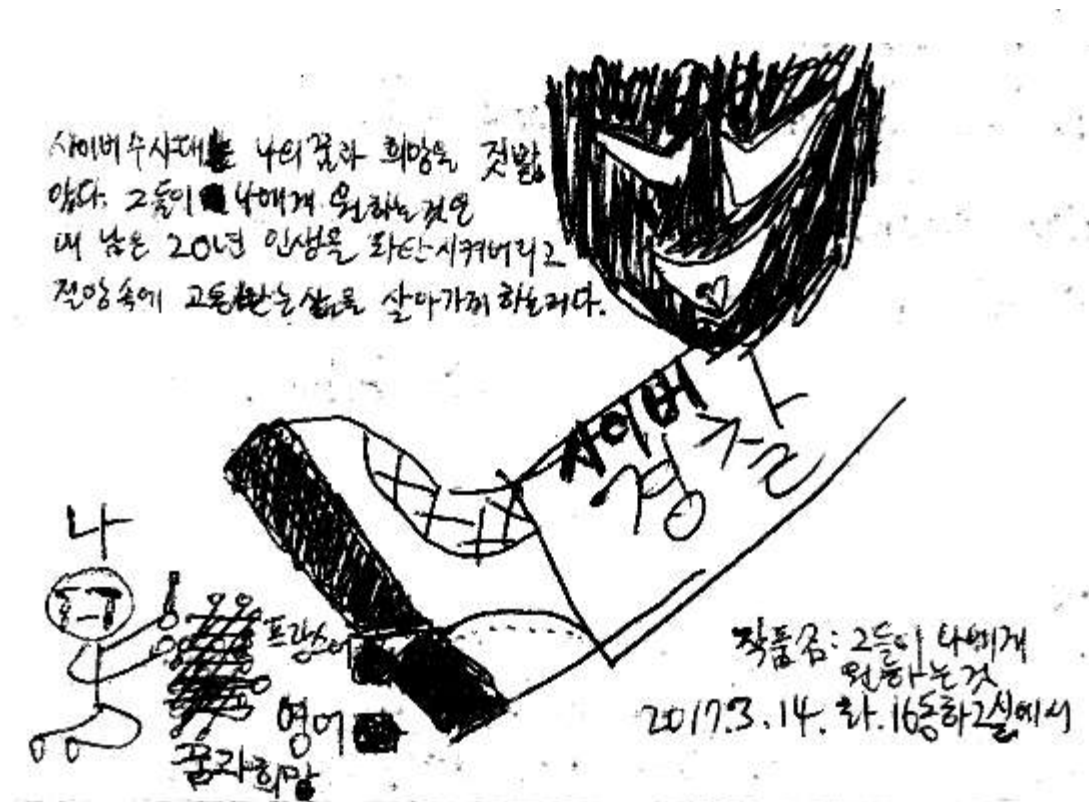 사이버수사대는 나의 꿈과 희망을 짓밟
았다. 그들이 나에게 원하는 것은
내 남은 20년 인생을 파탄시켜버리고
절망속에 고통받는 삶을 살아가게 하는거다.
사이버
경찰
나
프랑스어
영어
꿈과희망
작품명: 그들이 나에게
원하는것
2017.3.14. 화. 16동하2실에서